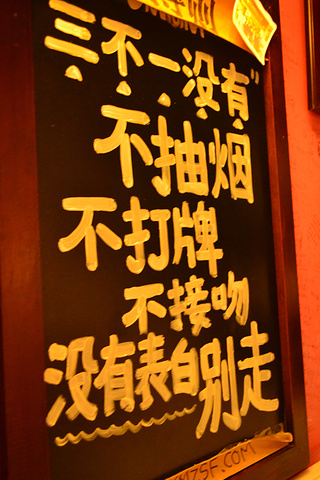 三不一没有"
不抽烟
不打牌
不接吻
没有表白别走
MZSF.COM